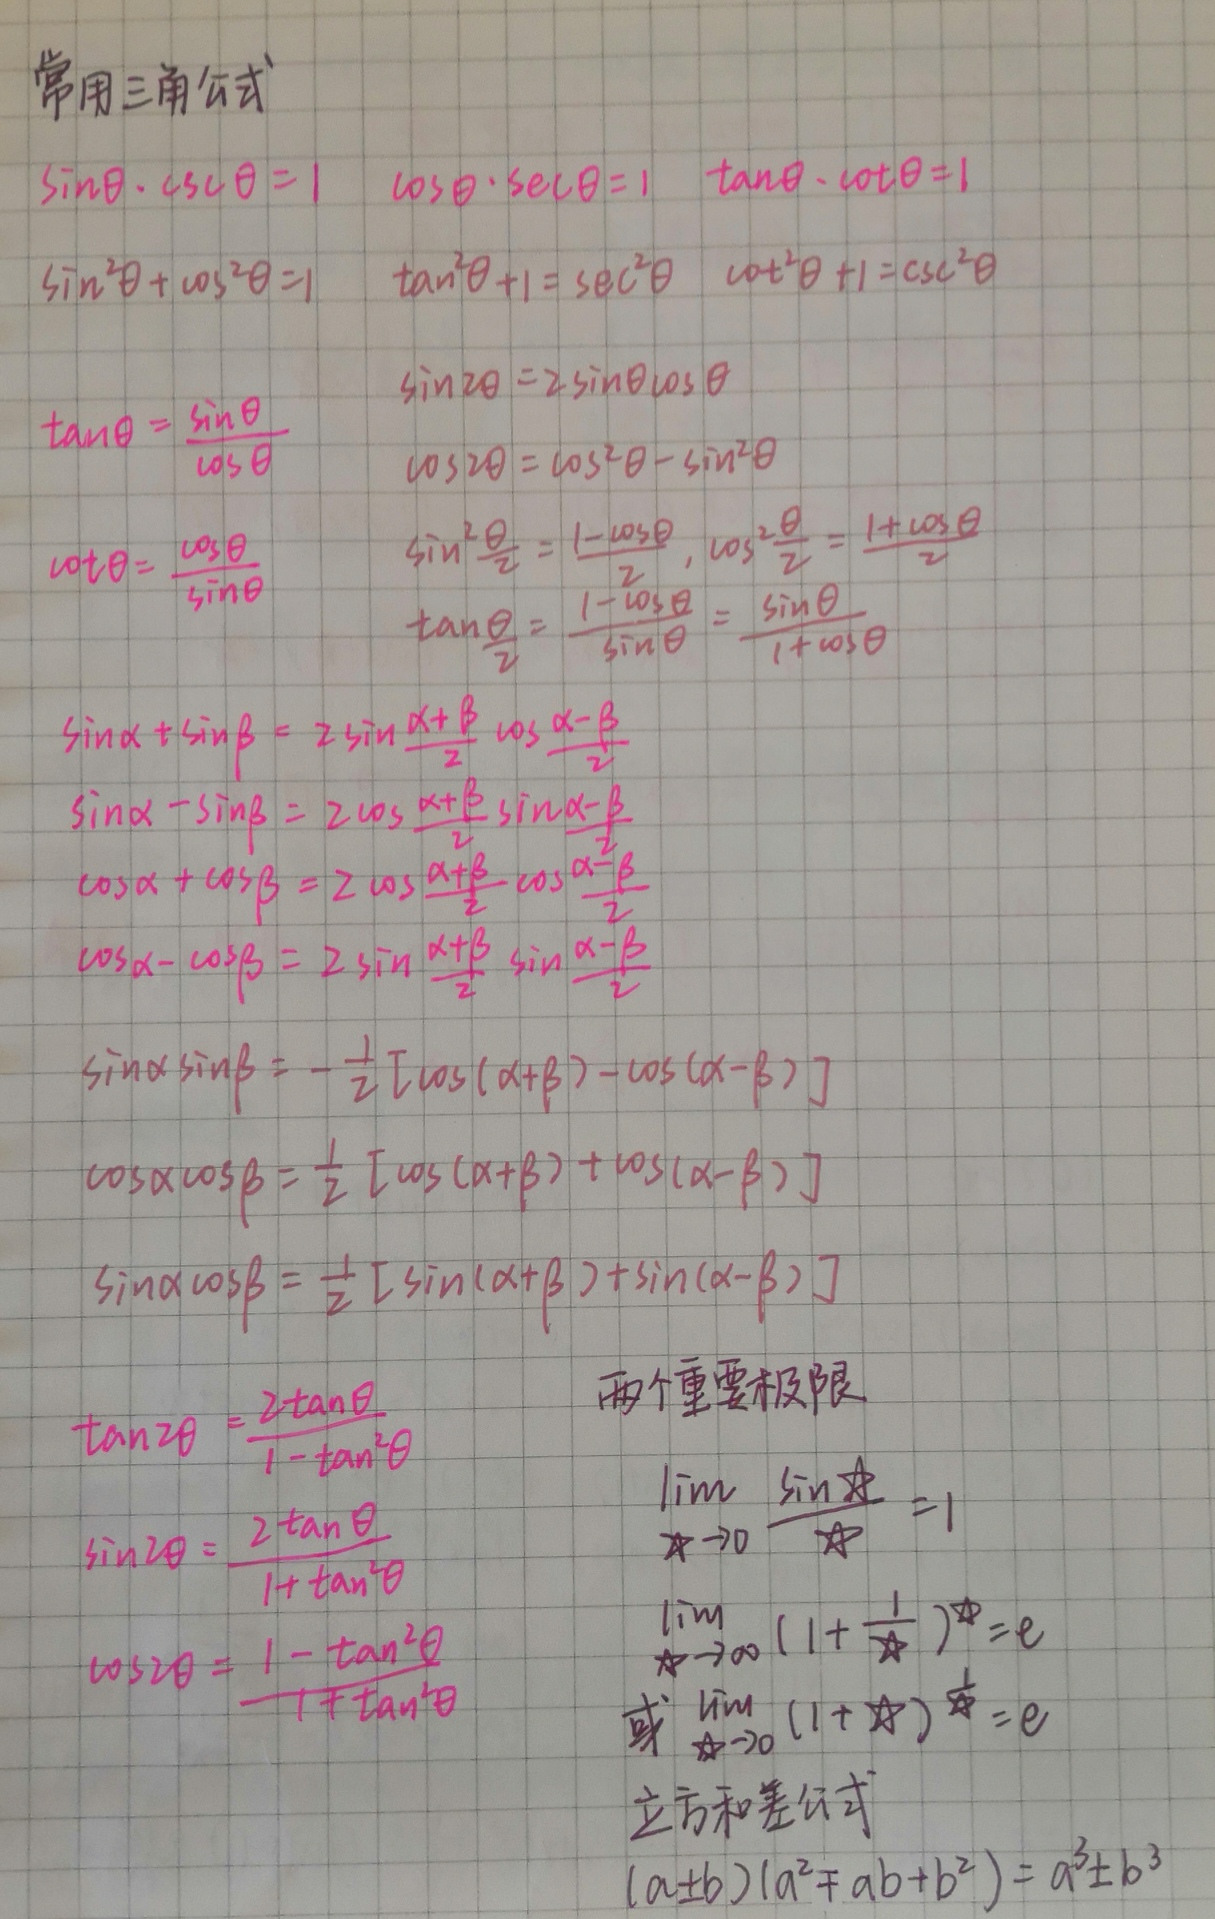 常用三角公式
sinθ·cscθ=1 cosθ·secθ=1 tanθ·cotθ=1
sin²θ+cos²θ=1 tan²θ+1=sec²θ cot²θ+1=csc²θ
tanθ = sinθ/cosθ
cotθ = cosθ/sinθ
sin2θ=2sinθcosθ
cos2θ=cos²θ-sin²θ
sin²θ/2 = (1-cosθ)/2, cos²θ/2 = (1+cosθ)/2
tanθ/2 = (1-cosθ)/sinθ = sinθ/(1+cosθ)
sinα+sinβ = 2sin(α+β)/2 cos(α-β)/2
sinα-sinβ = 2cos(α+β)/2 sin(α-β)/2
cosα+cosβ = 2cos(α+β)/2 cos(α-β)/2
cosα-cosβ = 2sin(α+β)/2 sin(α-β)/2
sinαsinβ = -1/2[cos(α+β)-cos(α-β)]
cosαcosβ = 1/2[cos(α+β)+cos(α-β)]
sinαcosβ = 1/2[sin(α+β)+sin(α-β)]
tan2θ = 2tanθ/(1-tan²θ)
sin2θ = 2tanθ/(1+tan²θ)
cos2θ = (1-tan²θ)/(1+tan²θ)
两个重要极限
lim ☆→0 sin☆/☆ =1
lim ☆→∞ (1+1/☆)^☆=e
或 lim ☆→0 (1+☆)^1/☆=e
立方和差公式
(a±b)(a²∓ab+b²)=a³±b³